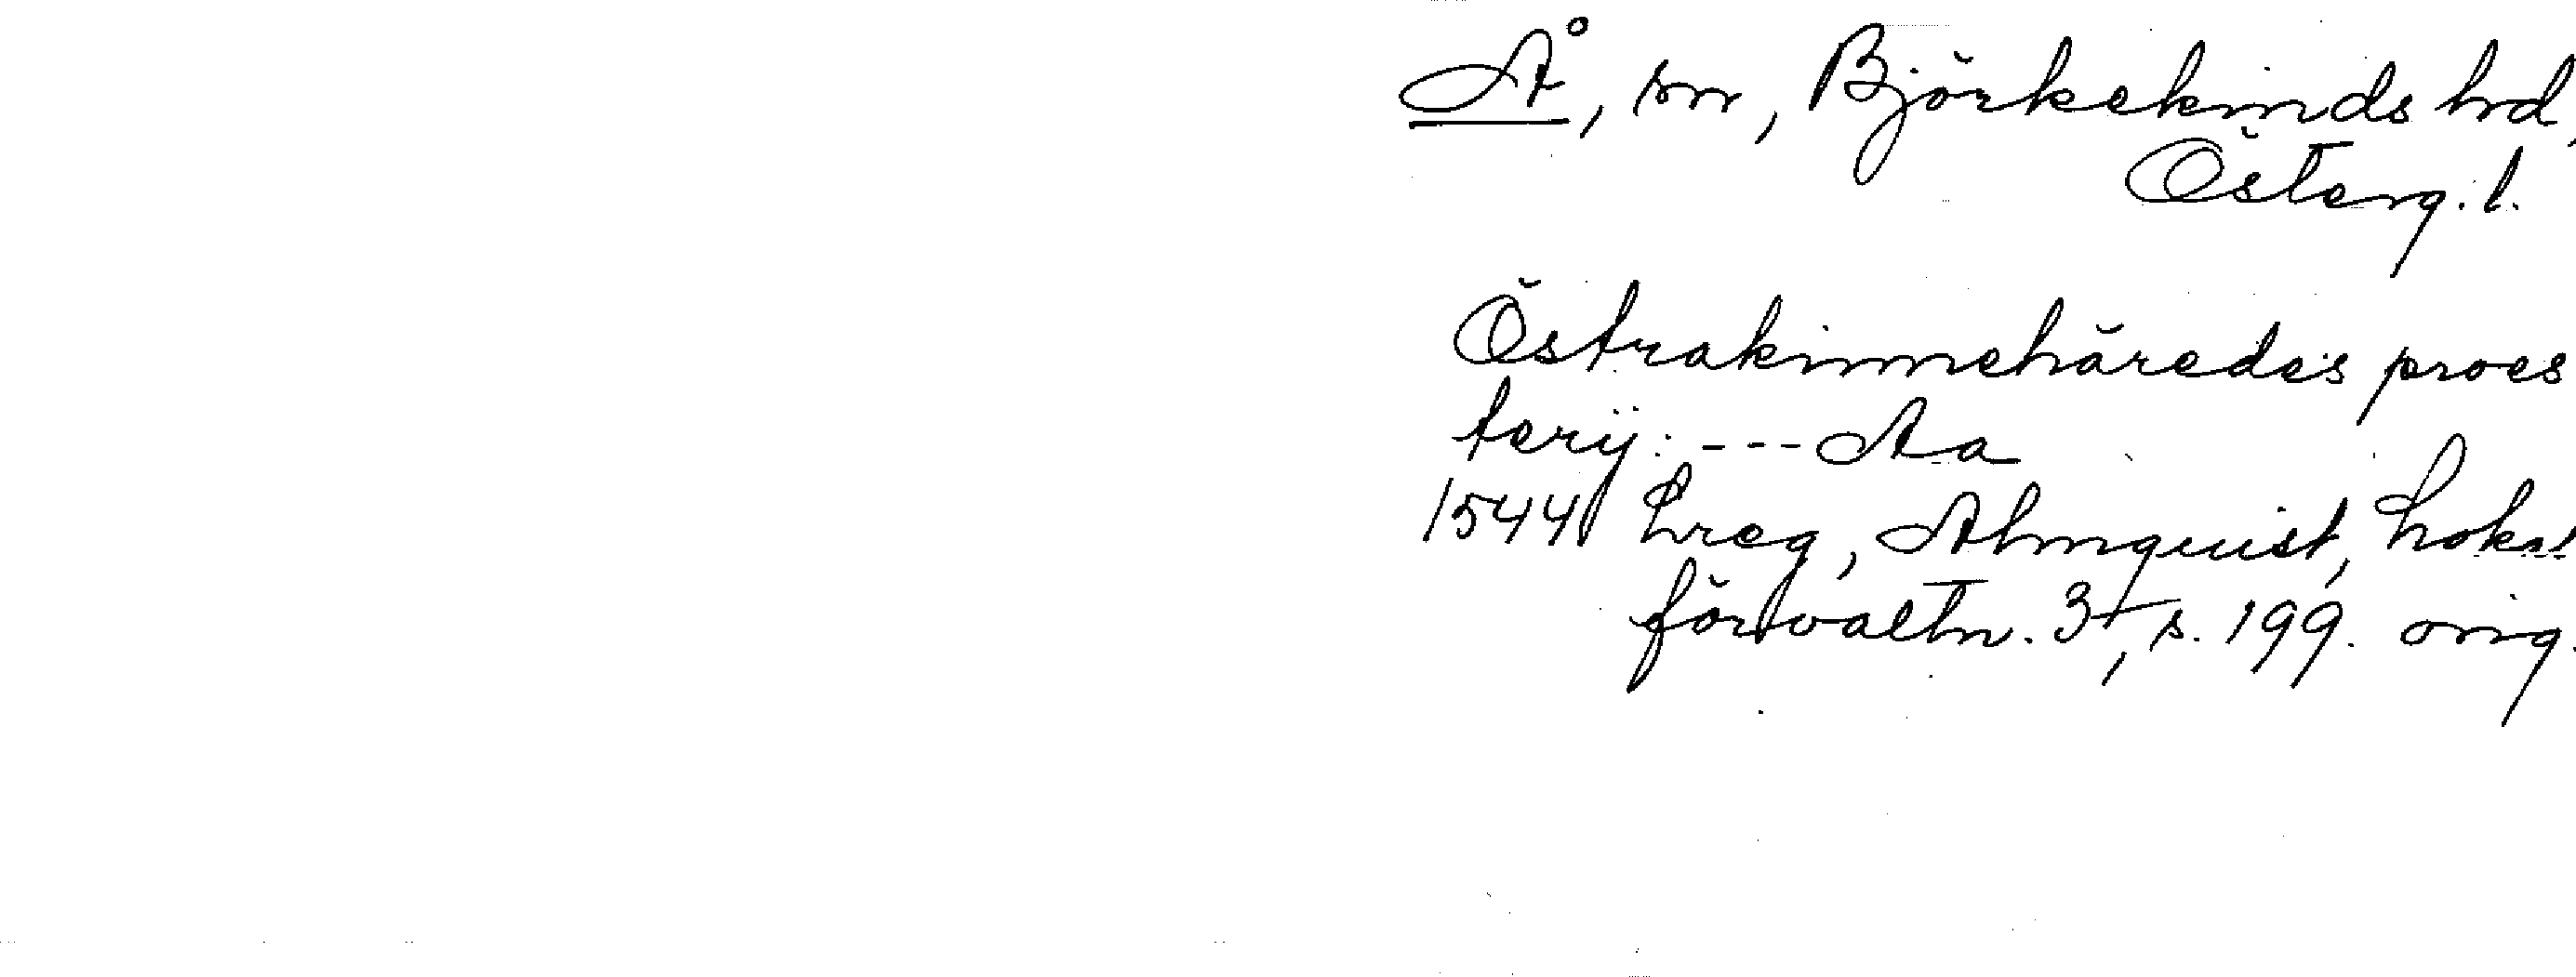 Å, sn, Björkekinds hd,
Österg. l.
Östrakinnehäredes proes
terij: --- Aa
1544 Lreg, Almquist, Lokal
förvaltn. 3, s. 199. orig.